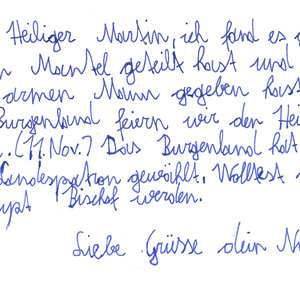 Heiliger Martin, ich find es
n Mantel geteilt hast und
armen Mann gegeben hast
Burgenland feiern wir den Hei
..(11.Nov.) Das Burgenland hat
Landespatron gewählt. Wolltest
upt Bischof werden.
Liebe Grüsse dein Ni